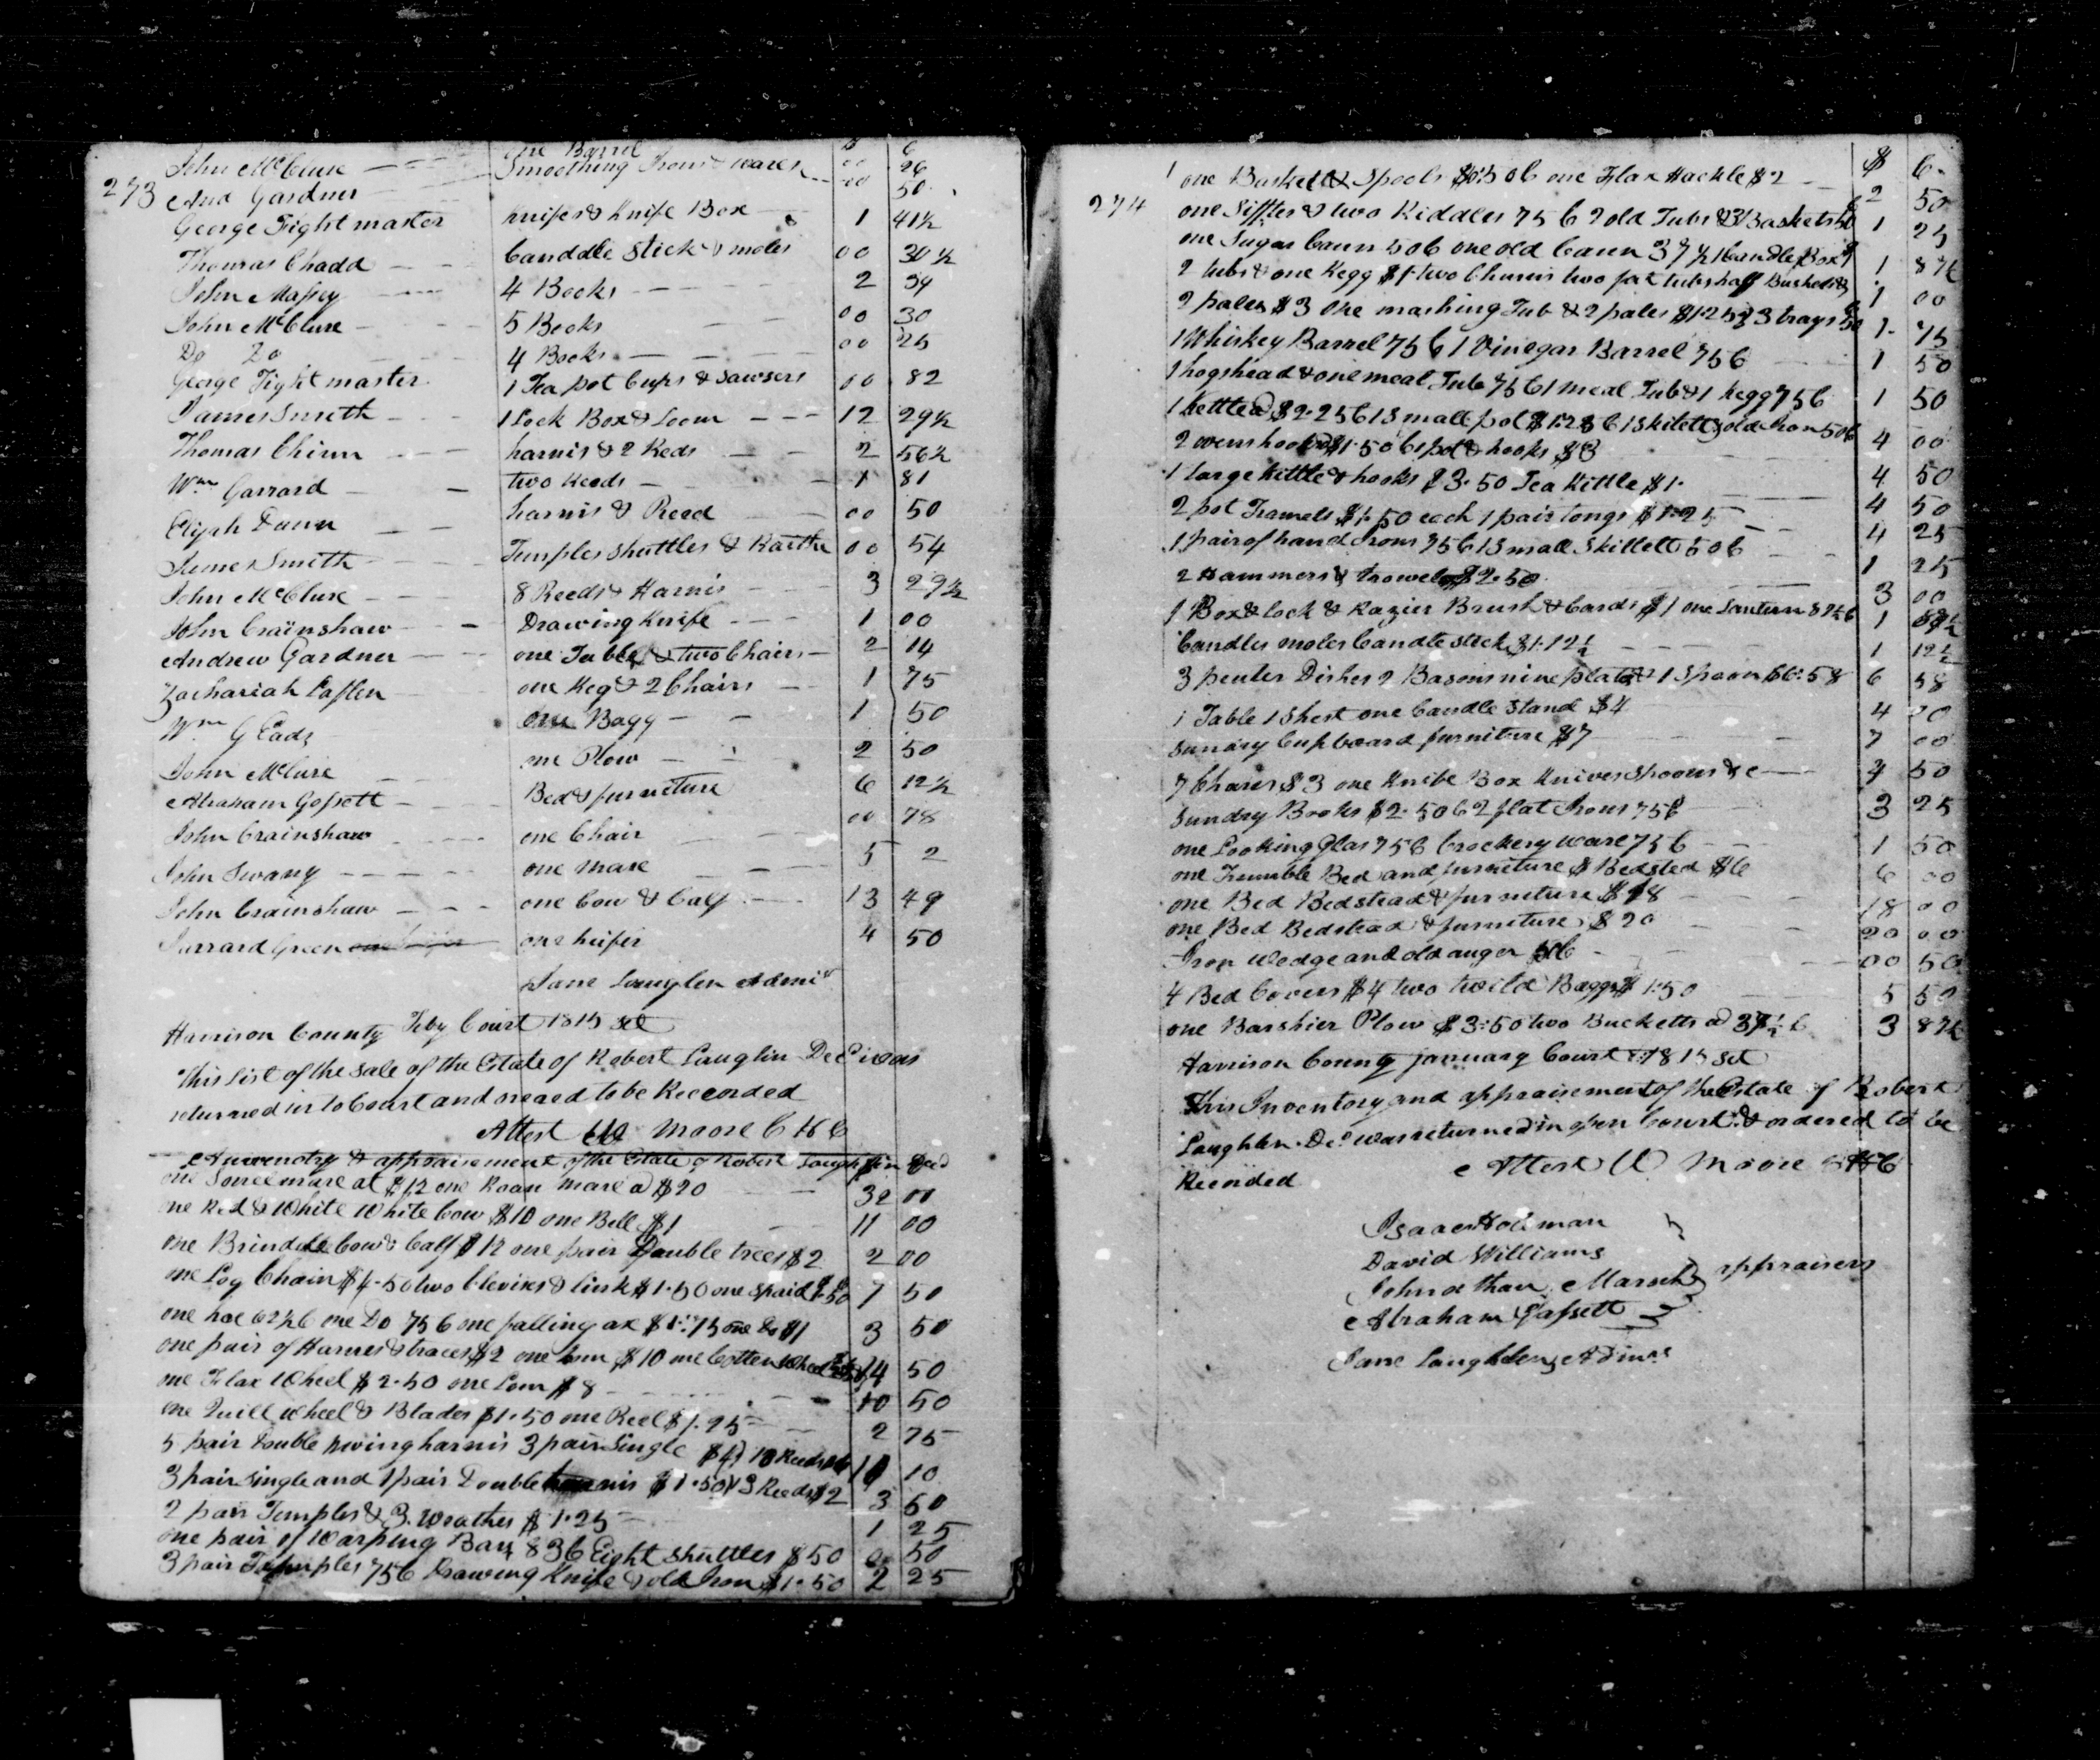 273
one Barrel $ C
John McClure Smoothing Irons & wares 00 26
And Gardner 00 50
George Fightmaster knifes & knife Box 1 41½
Thomas Chadd Canddle Stick & moles 00 30½
John Massey 4 Books 2 54
John McClure 5 Books 00 30
Do Do 4 Books 00 25
George Fightmaster 1 Tea pot Cups & Sawsers 00 82
James Smith 1 Lock Box & Loom 12 29½
Thomas Chinn harnis & 2 Reds 2 56½
Wm Garrard two Reeds 1 81
Elijah Dunn harnis & Reed 00 50
James Smith Temples Shuttles & 00 54
John McClure 8 Reeds & Harnis 3 29½
John Crainshaw Drawing Knife 1 00
Andrew Gardner one Table & two Chairs 2 14
Zachariah Laflen one Keg & 2 Chairs 1 75
Wm G Eads one Bagg 1 50
John McClure one Plow 2 50
Abraham Gossett Bed & furniture 6 12½
John Crainshaw one Chair 00 78
John Swany one mare 5 2
John Crainshaw one Cow & Calf 13 49
Jarrard Green one heifer 4 50
Jane Lauglen Admix
Harrison County Feby Court 1815 Set
This list of the Sale of the Estate of Robert Lauglin Decd was
returned in to Court and oreaed to be Recorded
Attest Moore C H C
Anventory & appraisement of the Estate of Robert Laughlin Decd
one Sorrel mare at $12 one Roan mare a $20 32 00
one Red & White White Cow $10 one Bell $1 11 00
one Brindle Cow & Calf $12 one pair Double trees $2 2 00
one Log Chain $4.50 two Clevises & link $1.50 one Spaid 7 50
one hoe 62½ C one Do 75 C one falling ax $1.75 one Do $1 3 50
one pair of Hames & traces $2 one Loom $10 one Cotten Wheel 14 50
one Flax Wheel $2.50 one Lom $8 10 50
one Quill Wheel & Blades $1.50 one Reel $1.25 2 75
5 pair Double harnis 3 pair Single $4 10 Reeds 10
3 pair Single and 1 pair Double harnis $1.50 3 Reeds $2 3 50
2 pair Temples & 3 $1.25 1 25
one pair of Warping Bars 8 36 Eight Shuttles $50 00 50
3 pair Temples 75 C Drawing Knife & old Iron $1.50 2 25
274
$ C
one Baskett & Spools $0.50 C one Flax Hackle $2 2 50
one Siffter & two Riddles 75 C 2 old Tubs & 3 Baskets 50 1 25
one Sugar Cann 50 C one old Cann 37½ 1 Candle Box 1 87½
2 tubs & one Kegg $1 two Churns two fat tubs half Bushel & 1 00
2 pales $3 one mashing Tub & 2 pales $1.25 3 trays 50 1 75
1 Whiskey Barrel 75 C 1 Vinegar Barrel 75 C 1 50
1 hogshead & one meal Tub 75 C 1 meal Tub & 1 Kegg 75 C 1 50
1 kettle $2.25 C 1 Small pot $1.25 C 1 Skilett & old Iron 50 C 4 00
2 oven hooks $1.50 C 1 pot & hooks $3 4 50
1 large Kittle & hooks $3.50 Tea Kittle $1 4 50
2 pot Tramels $1.50 each 1 pair tongs $1.25 4 25
1 pair of hand Irons 75 C 1 Small Skillett 50 C 1 25
2 Hammers & trowels $2.50 3 00
1 Box & lock & Razier Brush & Cards $1 one Lantern 87½ C 1
Candles moles Candle stick $1.12½ 1 12½
3 peuter Dishes 2 Basons nine plates 1 Spoon $6.58 6 58
1 Table 1 Shest one Candle Stand $4 4 00
Sundry Cupboard furniture $7 7 00
7 Chares $3 one Knife Box Knives Spoons &c 4 50
Sundry Books $2.50 C 2 flat Irons 75 C 3 25
one Looking Glas 75 C Crockery ware 75 C 1 50
one Trumble Bed and furniture & Bedsted $6 6 00
one Bed Bedstead & furniture $18 18 00
one Bed Bedstead & furniture $20 20 00
Iron Wedge and old auger 50 C 00 50
4 Bed Covers $4 two twild Baggs $1.50 5 50
one Barshier Plow $3.50 two Bucketts a 37½ C 3 87½
Harrison County January Court 1815 Set
This Inventory and appraisement of the Estate of Robert
Laughlen Decd was returned in open Court & ordered to be
Recorded Attest W Moore C H C
Isaac Holman
David Williams
Johnathan Marsh appraisers
Abraham Gassett
Jane Laughlen Admrx